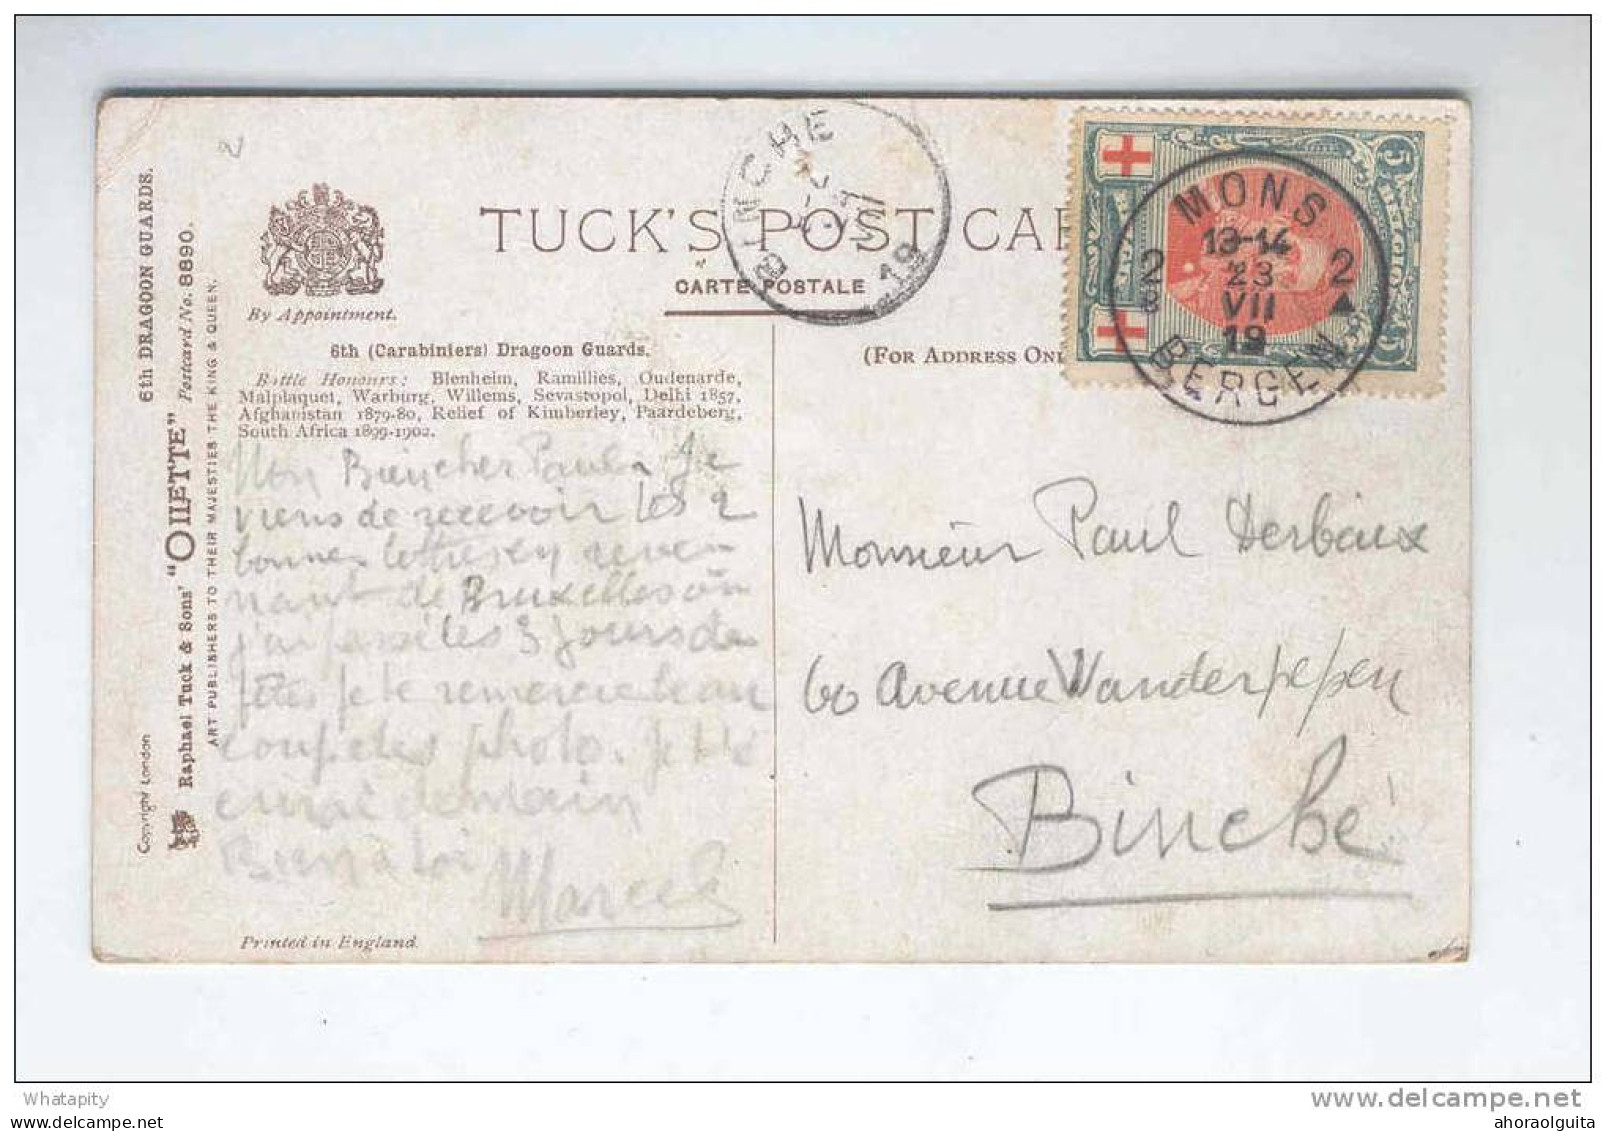 2
6th DRAGOON GUARDS.
Raphael Tuck & Sons' "OILETTE" Postcard No. 8890.
ART PUBLISHERS TO THEIR MAJESTIES THE KING & QUEEN.
Copyright London
By Appointment.
TUCK'S POST CAR
CARTE POSTALE
BINCHE
VII
19
5
5
MONS
13-14
23
VII
19
2 2
B
BERGEN
(FOR ADDRESS ONL
6th (Carabiniers) Dragoon Guards.
Battle Honours: Blenheim, Ramillies, Oudenarde,
Malplaquet, Warburg, Willems, Sevastopol, Delhi 1857,
Afghanistan 1879-80, Relief of Kimberley, Paardeberg,
South Africa 1899-1902.
Mon Bien cher Paul. Je
viens de recevoir les 2
bonnes lettres en reve-
nant de Bruxelles où
j'ai passé les 3 jours de
fêtes je te remercie beau
coup des photo. Je t'é
crirai demain
Bien à toi
Marcel
Monsieur Paul Derbaix
60 Avenue Vanderpepen
Binche
Printed in England.
Whatapity
www.delcampe.net
ahoraolguita